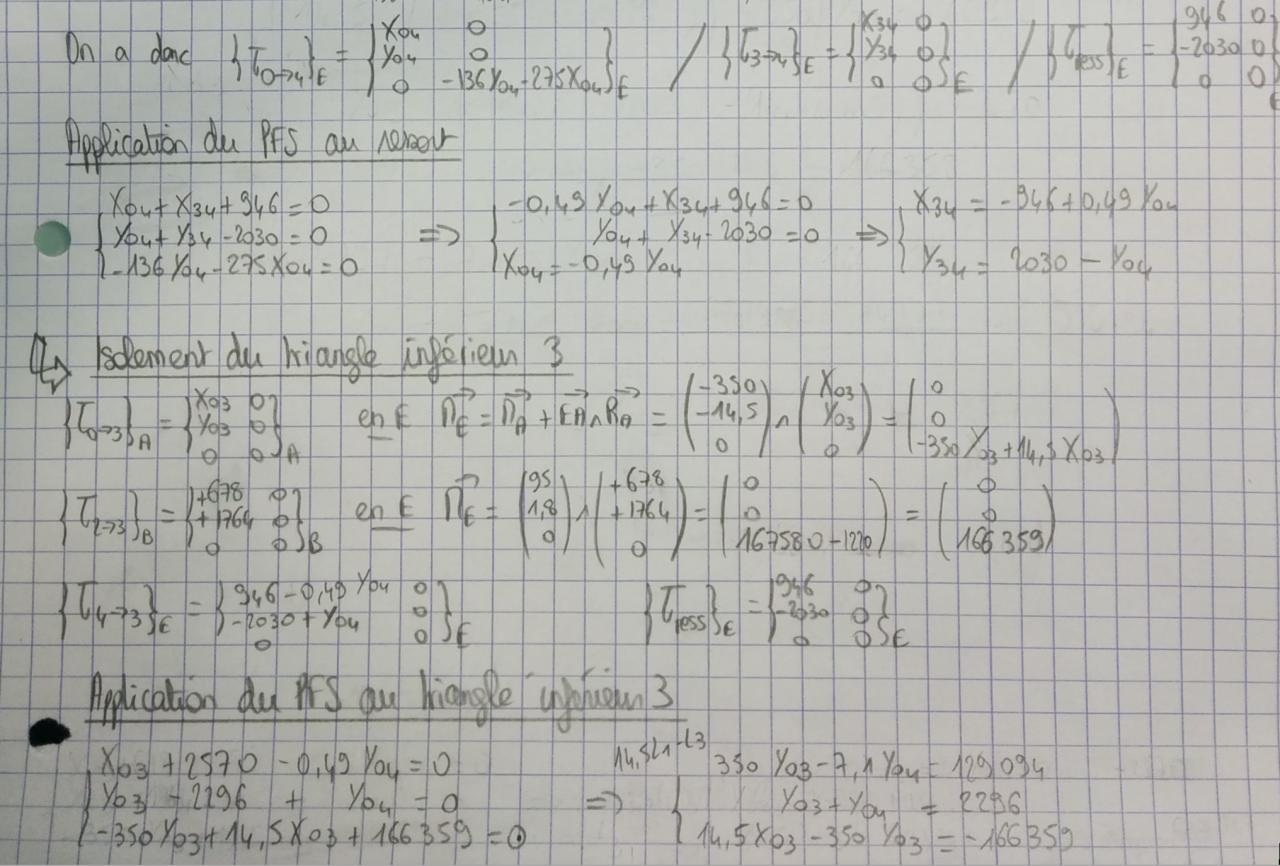 On a donc {T0→4}E = {X04 0 / Y04 0 / 0 -136Y04-275X04}E / {T3→4}E = {X34 0 / Y34 0 / 0 0}E / {Tress}E = {946 0 / -2030 0 / 0 0}E
Application du PFS au ressort
{X04 + X34 + 946 = 0 => {-0,49 Y04 + X34 + 946 = 0 => {X34 = -946 + 0,49 Y04
Y04 + Y34 - 2030 = 0 Y04 + Y34 - 2030 = 0
-136 Y04 - 275 X04 = 0 X04 = -0,49 Y04 Y34 = 2030 - Y04
↳ Isolement du triangle inférieur 3
{T0→3}A = {X03 0 / Y03 0 / 0 0}A en E ME = MA + EA ∧ RA = (-350 / -14,5 / 0) ∧ (X03 / Y03 / 0) = (0 / 0 / -350 Y03 + 14,5 X03)
{T2→3}B = {+678 0 / +1764 0 / 0 0}B en E ME = (95 / 1,8 / 0) ∧ (+678 / +1764 / 0) = (0 / 0 / 167580 - 1220) = (0 / 0 / 166 359)
{T4→3}E = {946 - 0,49 Y04 0 / -2030 + Y04 0 / 0 0}E {Tress}E = {946 0 / -2030 0 / 0 0}E
Application du PFS au triangle inférieur 3
{X03 + 2570 - 0,49 Y04 = 0 14,5L1-L3 350 Y03 - 7,1 Y04 = 129 094
Y03 - 2296 + Y04 = 0 => { Y03 + Y04 = 2296
-350 Y03 + 14,5 X03 + 166 359 = 0 14,5 X03 - 350 Y03 = -166 359